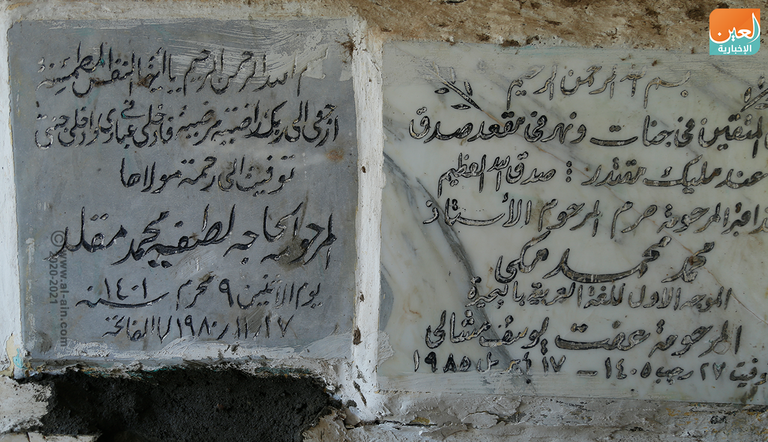 بسم الله الرحمن الرحيم
المتقين في جنات ونهر في مقعد صدق
عند مليك مقتدر : صدق الله العظيم
المرحومة حرم المرحوم الأستاذ
محمد محمد مكي
الموجه الأول للغة العربية بالبحيرة
المرحومة عفت يوسف مشالي
٢٧ رجب ١٤٠٥ - ١٧ ١٩٨٥
بسم الله الرحمن الرحيم يا أيتها النفس المطمئنة
ارجعي إلى ربك راضية مرضية فادخلي في عبادي وادخلي جنتي
توفيت إلى رحمة مولاها
المرحومة الحاجه لطفيه محمد مقلد
يوم الاثنين ٩ محرم سنة ١٤٠١
١٧ / ١١ / ١٩٨٠ الفاتحة
العين
الإخبارية
© www.al-ain.com
2020-2021